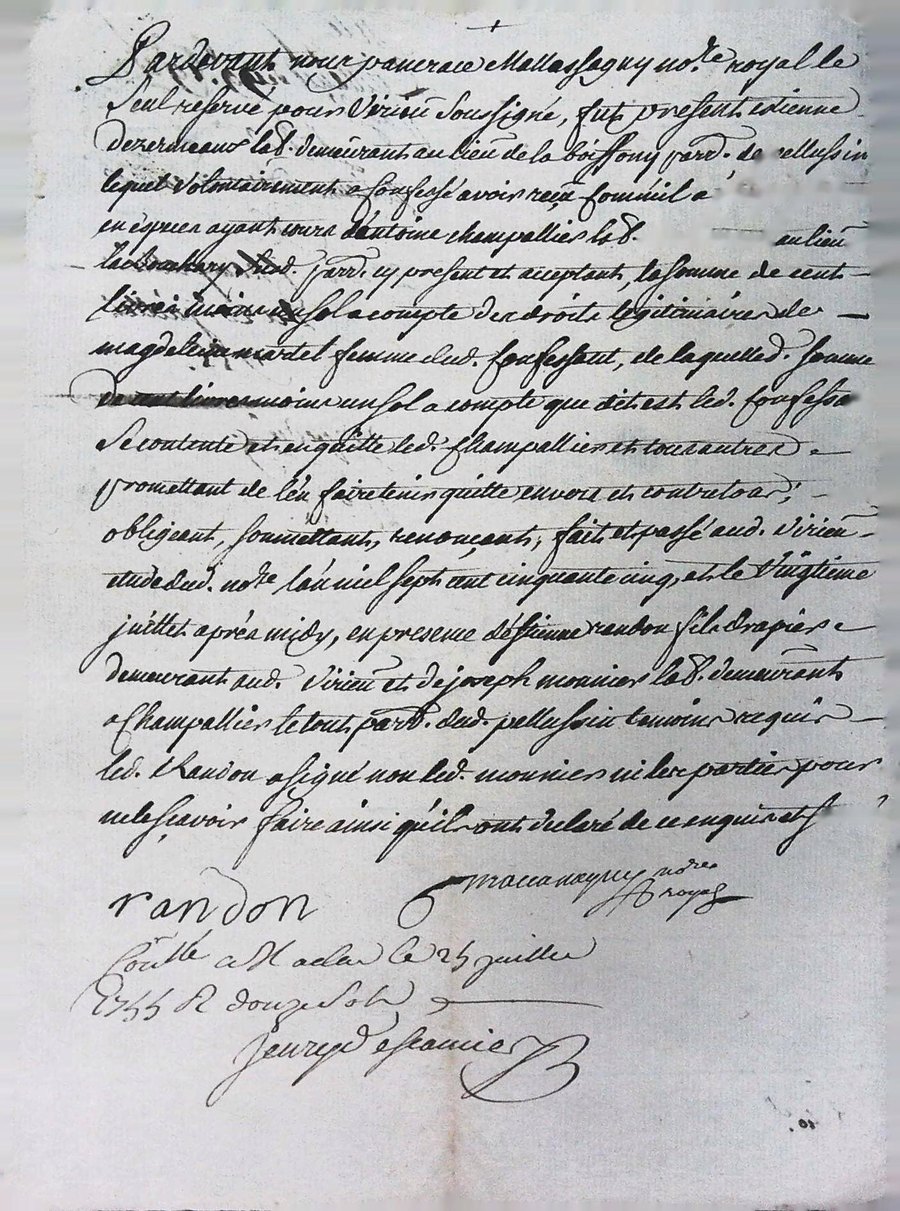 Pardevant nous pancrace Mallassagny no.re royal le
Seul reservé pour Virieu Soussigné, fut present etienne
dezermeaux lab.r demeurant au lieu de la boissony parr. de pellussin
lequel volontairement a confessé avoir reçu
en especes ayant cours d'antoine champallier lab.r au lieu
dud. parr. cy present et acceptant, la somme de cent
livres moins un sol a compte des droits legitimaires de
magdeleine martel femme dud. confessant, de laquelle d. somme
de cent livres moins un sol a compte que dit est led. confess
Se contente et en quitte led. Champallier et tous autres
promettant de l'en faire tenir quitte envers et contre tous;
obligeant, soumettant, renonçant, fait et passé aud. Virieu
etude dud. no.re l'an mil sept cent cinquante cinq, et le vingtieme
juillet après midy, en presence d'estienne randon fils drapier
demeurant aud. Virieu et de joseph monnier lab.r demeurant
a Champallier le tout parr. dud. pellussin temoins requis
led. Randon a signé non led. monnier ni les parties pour
ne le sçavoir faire ainsi qu'ils ont declaré de ce enquis et s
randon
no.re royal
Con.llé a Maclas le 25 juillet
1755 R douze sols